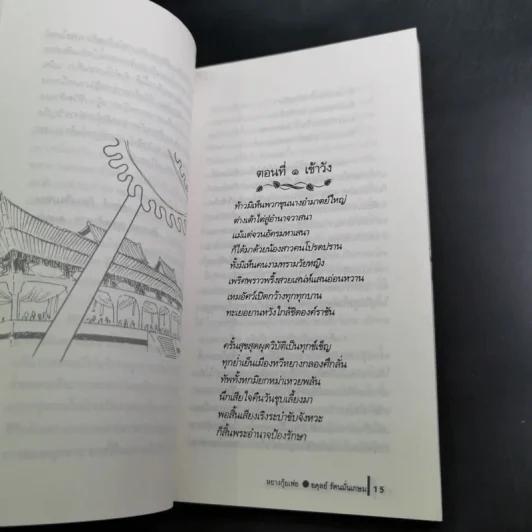 ตอนที่ ๑ เข้าวัง
ท้าวมิเห็นพวกขุนนางอำมาตย์ใหญ่
ต่างเต้าไต่สู่อำนาจวาสนา
แม้แต่จวนอัครมหาเสนา
ก็ได้มาด้วยน้องสาวคนโปรดปราน
ทั้งมิเห็นคนงามทรามวัยหญิง
เพริศพราวพริ้งสวยเสน่ห์แสนอ่อนหวาน
เหมอัศว์เปิดกว้างทุกทุกบาน
ทะเยอยานหวังใกล้ชิดองค์ราชัน
ครั้นสุขสุดผุดวิบัติเป็นทุกข์เข็ญ
ทุกย่ำเย็นเมืองทวีทยางกลองศึกลั่น
ทัพทั้งหกมิยกหม่าเหวยพลัน
นึกเสียใจคืนวันชุบเลี้ยงมา
พอสิ้นเสียงเริงระบำขับจังหวะ
ก็สิ้นพระอำนาจป้องรักษา
หยางกุ้ยเฟย ● อดุลย์ รัตนมั่นเกษม 15